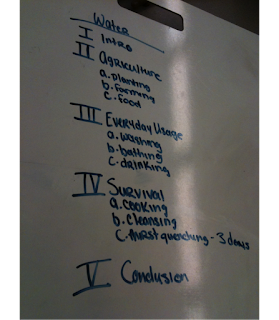 Water
I Intro
II Agriculture
a. planting
b. farming
c. food
III Everyday Usage
a. washing
b. bathing
c. drinking
IV Survival
a. cooking
b. cleansing
c. thirst quenching - 3 days
V Conclusion